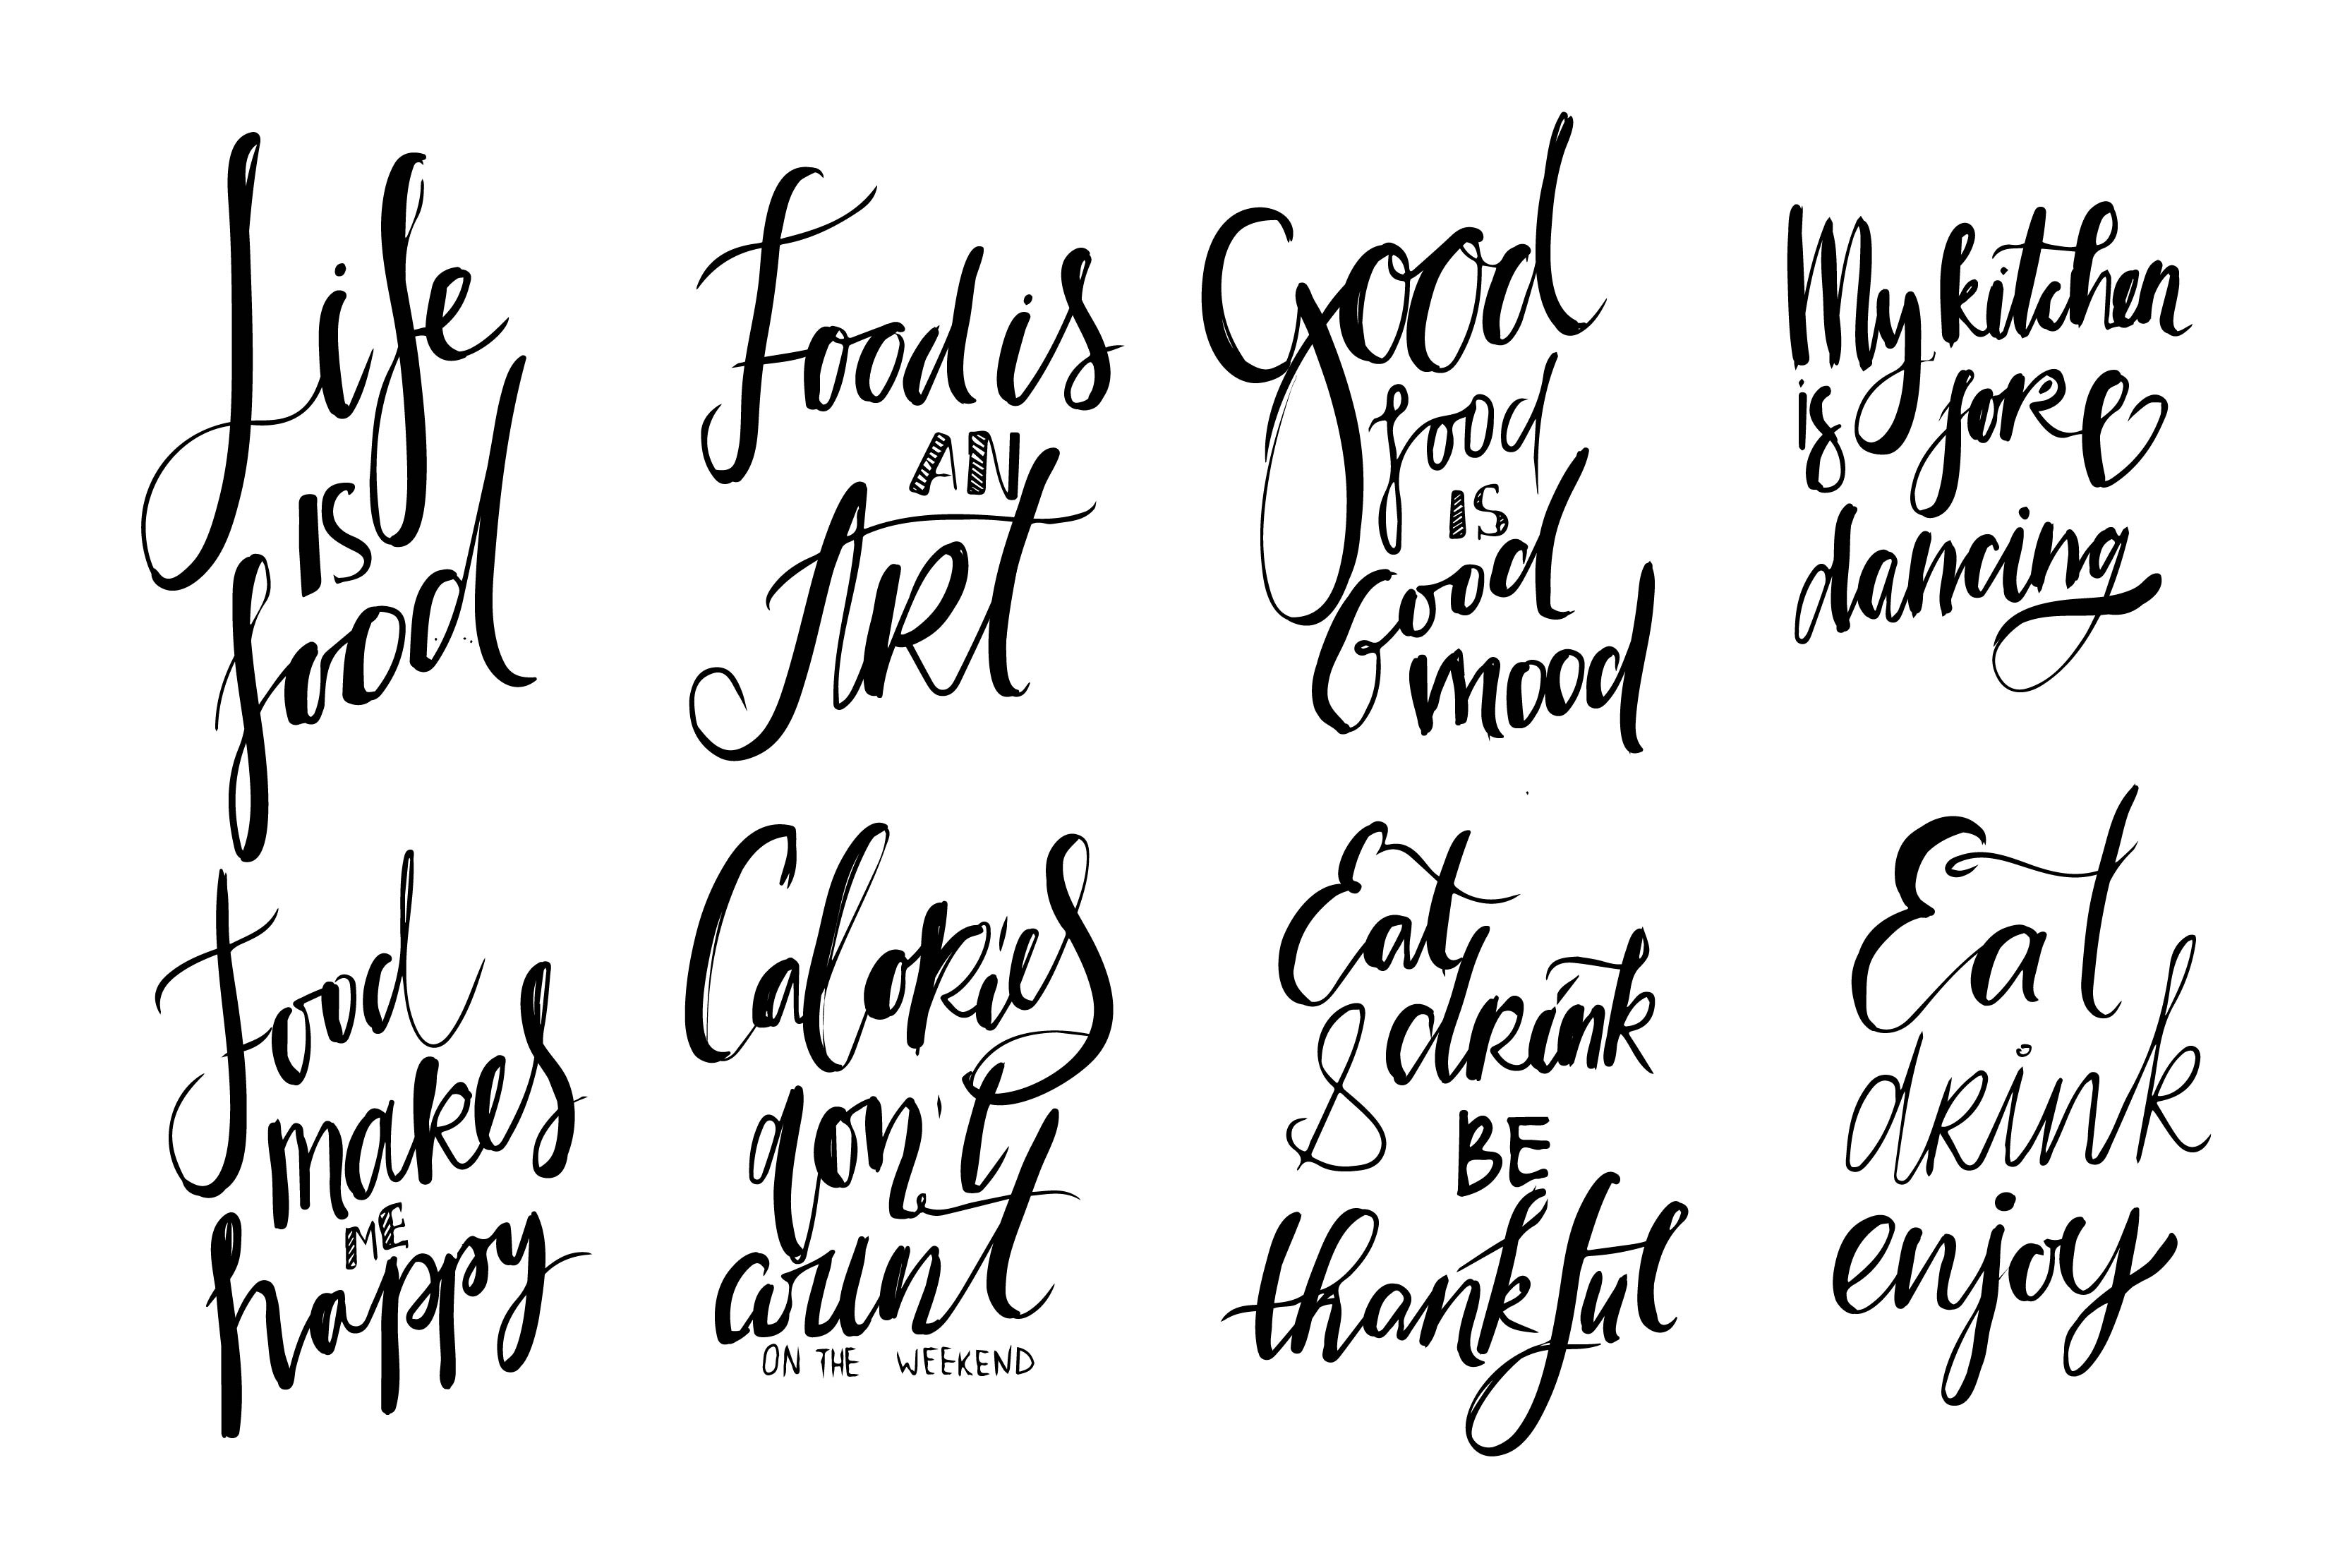 Life
IS
food
Food is
AN
Art
Good
food
IS
Good
mood
My kitchen
is for
dancing
Food
makes
ME
happy
Calories
don't
count
ON THE WEEKEND
Eat
Speak
BE
thankful
Eat
drink
enjoy